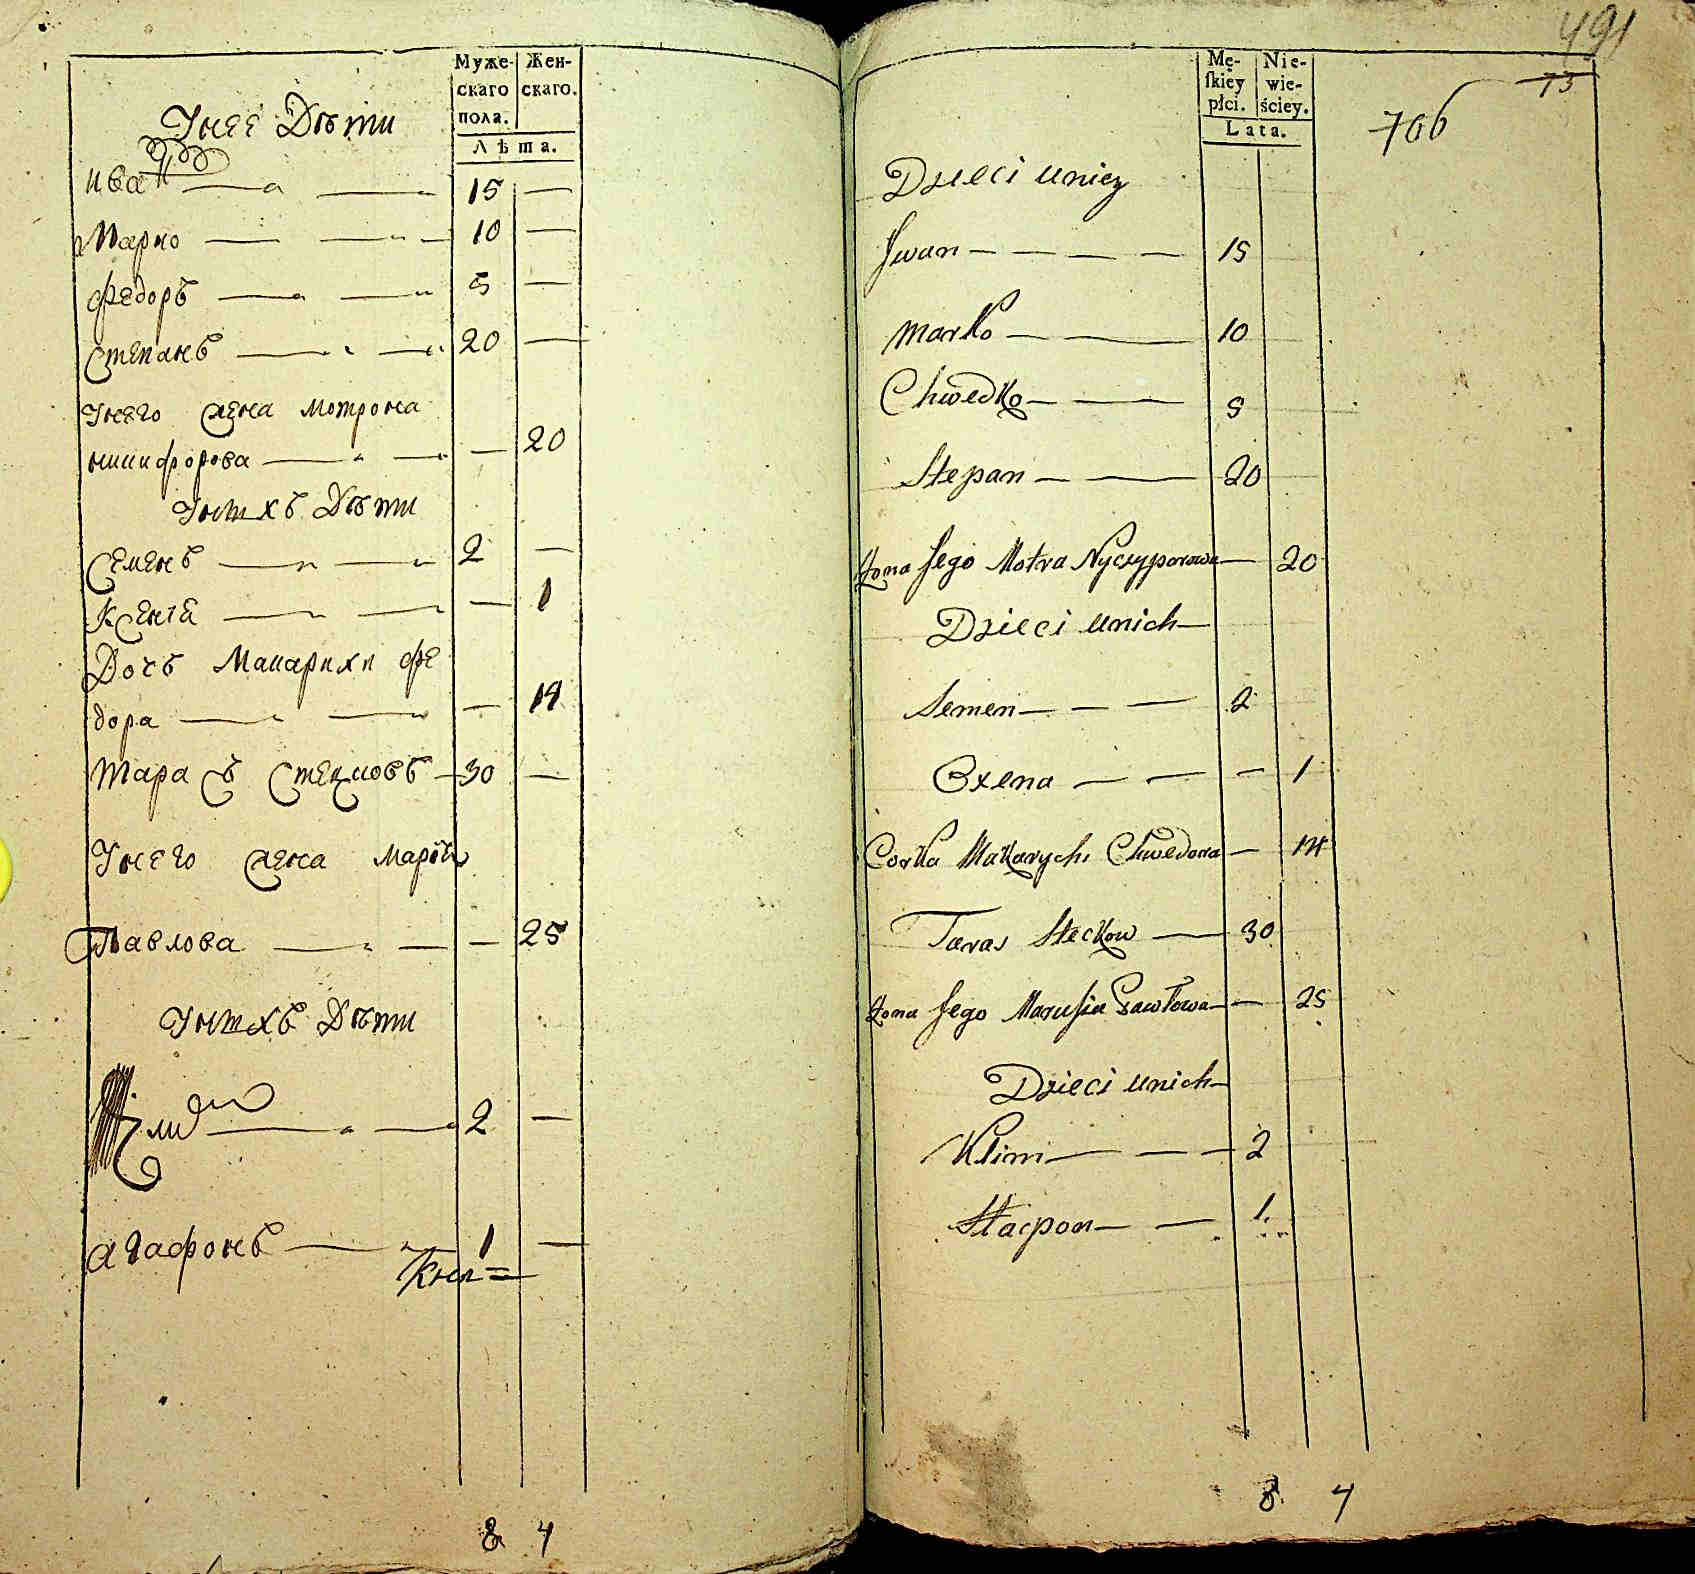 Муже- Жен-
скаго скаго.
пола.
Лѣта.
Унеѣ Дѣти
ива 15 —
Марко 10 —
Федоръ 5 —
Степанъ 20 —
Унего жена мотрона
никифорова — 20
Унихъ Дѣти
Семенъ 2 —
Ксенiя — 1
Дочъ Макарихи фе
дора — 14
Тарасъ Стецковъ 30 —
Унего жена
Павлова — 25
Унихъ Дѣти
2 —
агафонъ 1 —
8 4
491
73
706
Mę- Nie-
ſkiey wie-
płci. ściey.
Lata.
Dzieci uniey
Jwan 15
Marko 10
Chwedko 5
Stepan 20
Żona Jego Motra Nyczyporowa 20
Dzieci unich
Semen 2
Oxena — 1
Corka Makarychi Chwedora — 14
Taras Steckow 30
Żona Jego Marusia Pawłowa — 25
Dzieci unich
Klim 2
Hacpon 1
8 4